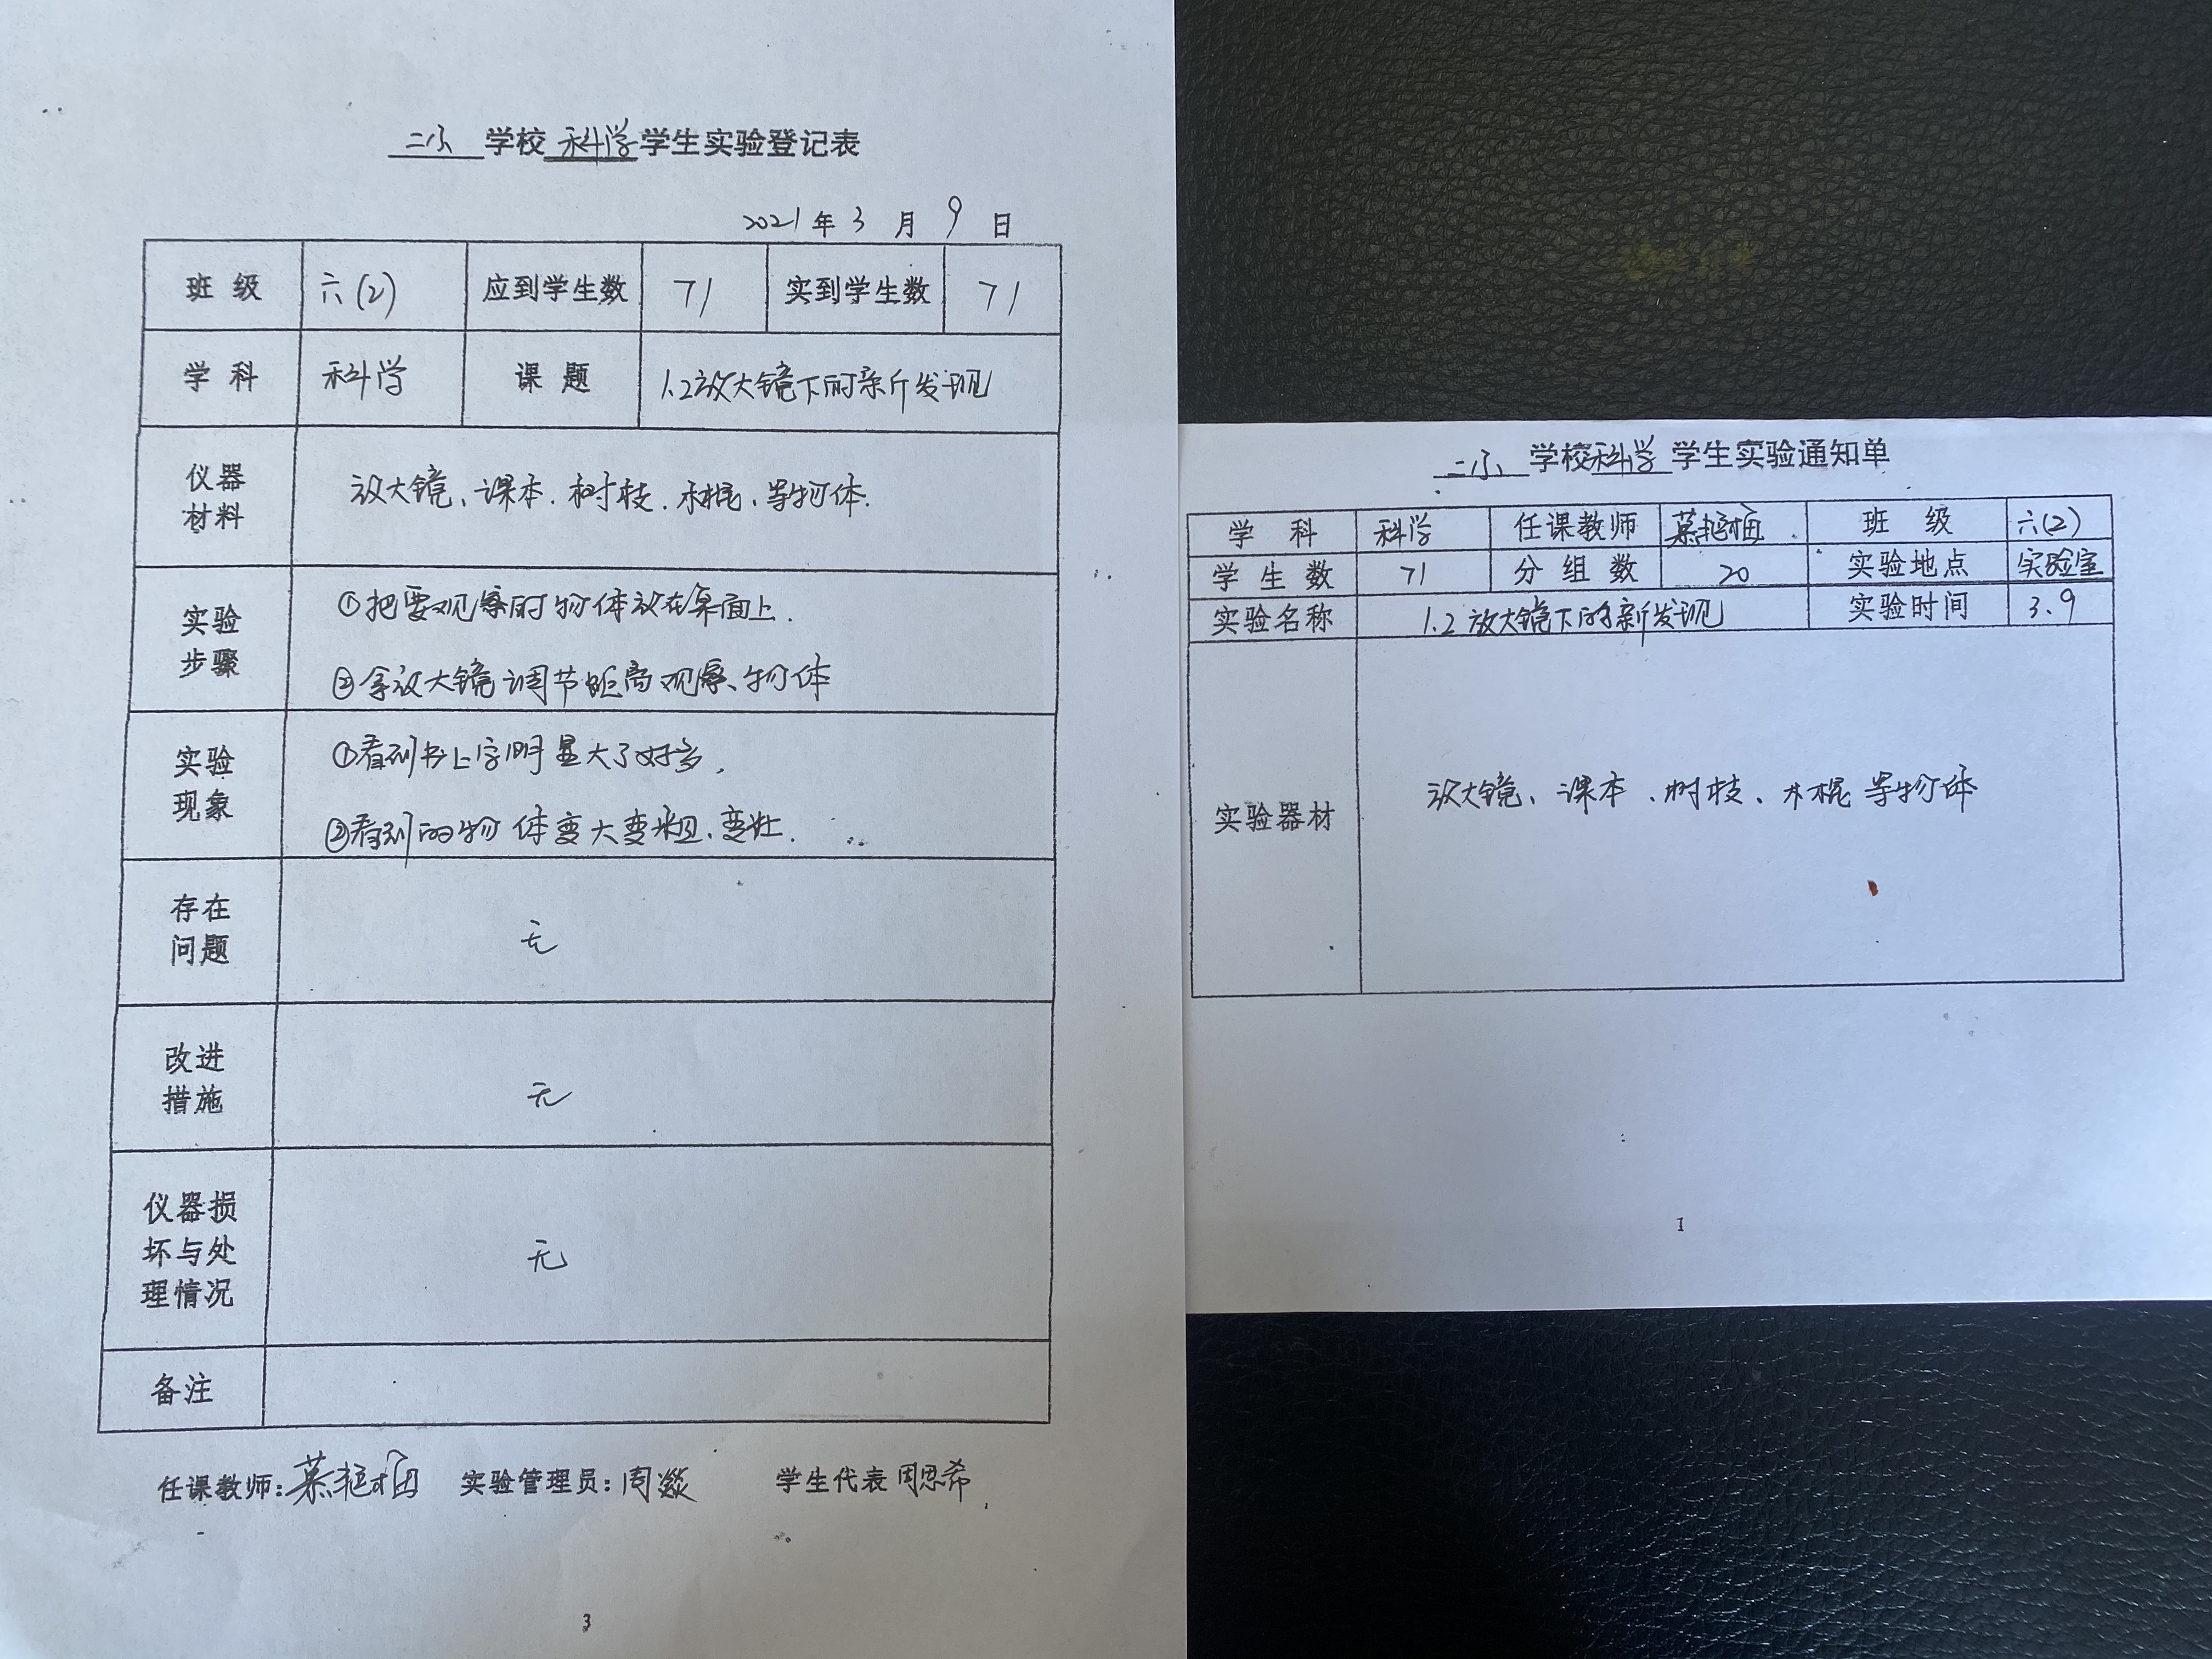 二小 学校 科学 学生实验登记表
2021 年 3 月 9 日
班 级 六(2) 应到学生数 71 实到学生数 71
学 科 科学 课 题 1.2放大镜下的新发现
仪器
材料
放大镜、课本.树枝.木棍、等物体.
实验
步骤
①把要观察的物体放在桌面上.
②拿放大镜调节距离观察、物体
实验
现象
①看到书上字明显大了好多,
②看到的物体变大变粗、变壮.
存在
问题
无
改进
措施
无
仪器损
坏与处
理情况
无
备注
任课教师: 实验管理员:周 学生代表 周思希
3
二小 学校科学 学生实验通知单
学 科 科学 任课教师 班 级 六(2)
学 生 数 71 分 组 数 20 实验地点 实验室
实验名称 1.2 放大镜下的新发现 实验时间 3.9
实验器材 放大镜、课本、树枝、木棍等物体
I